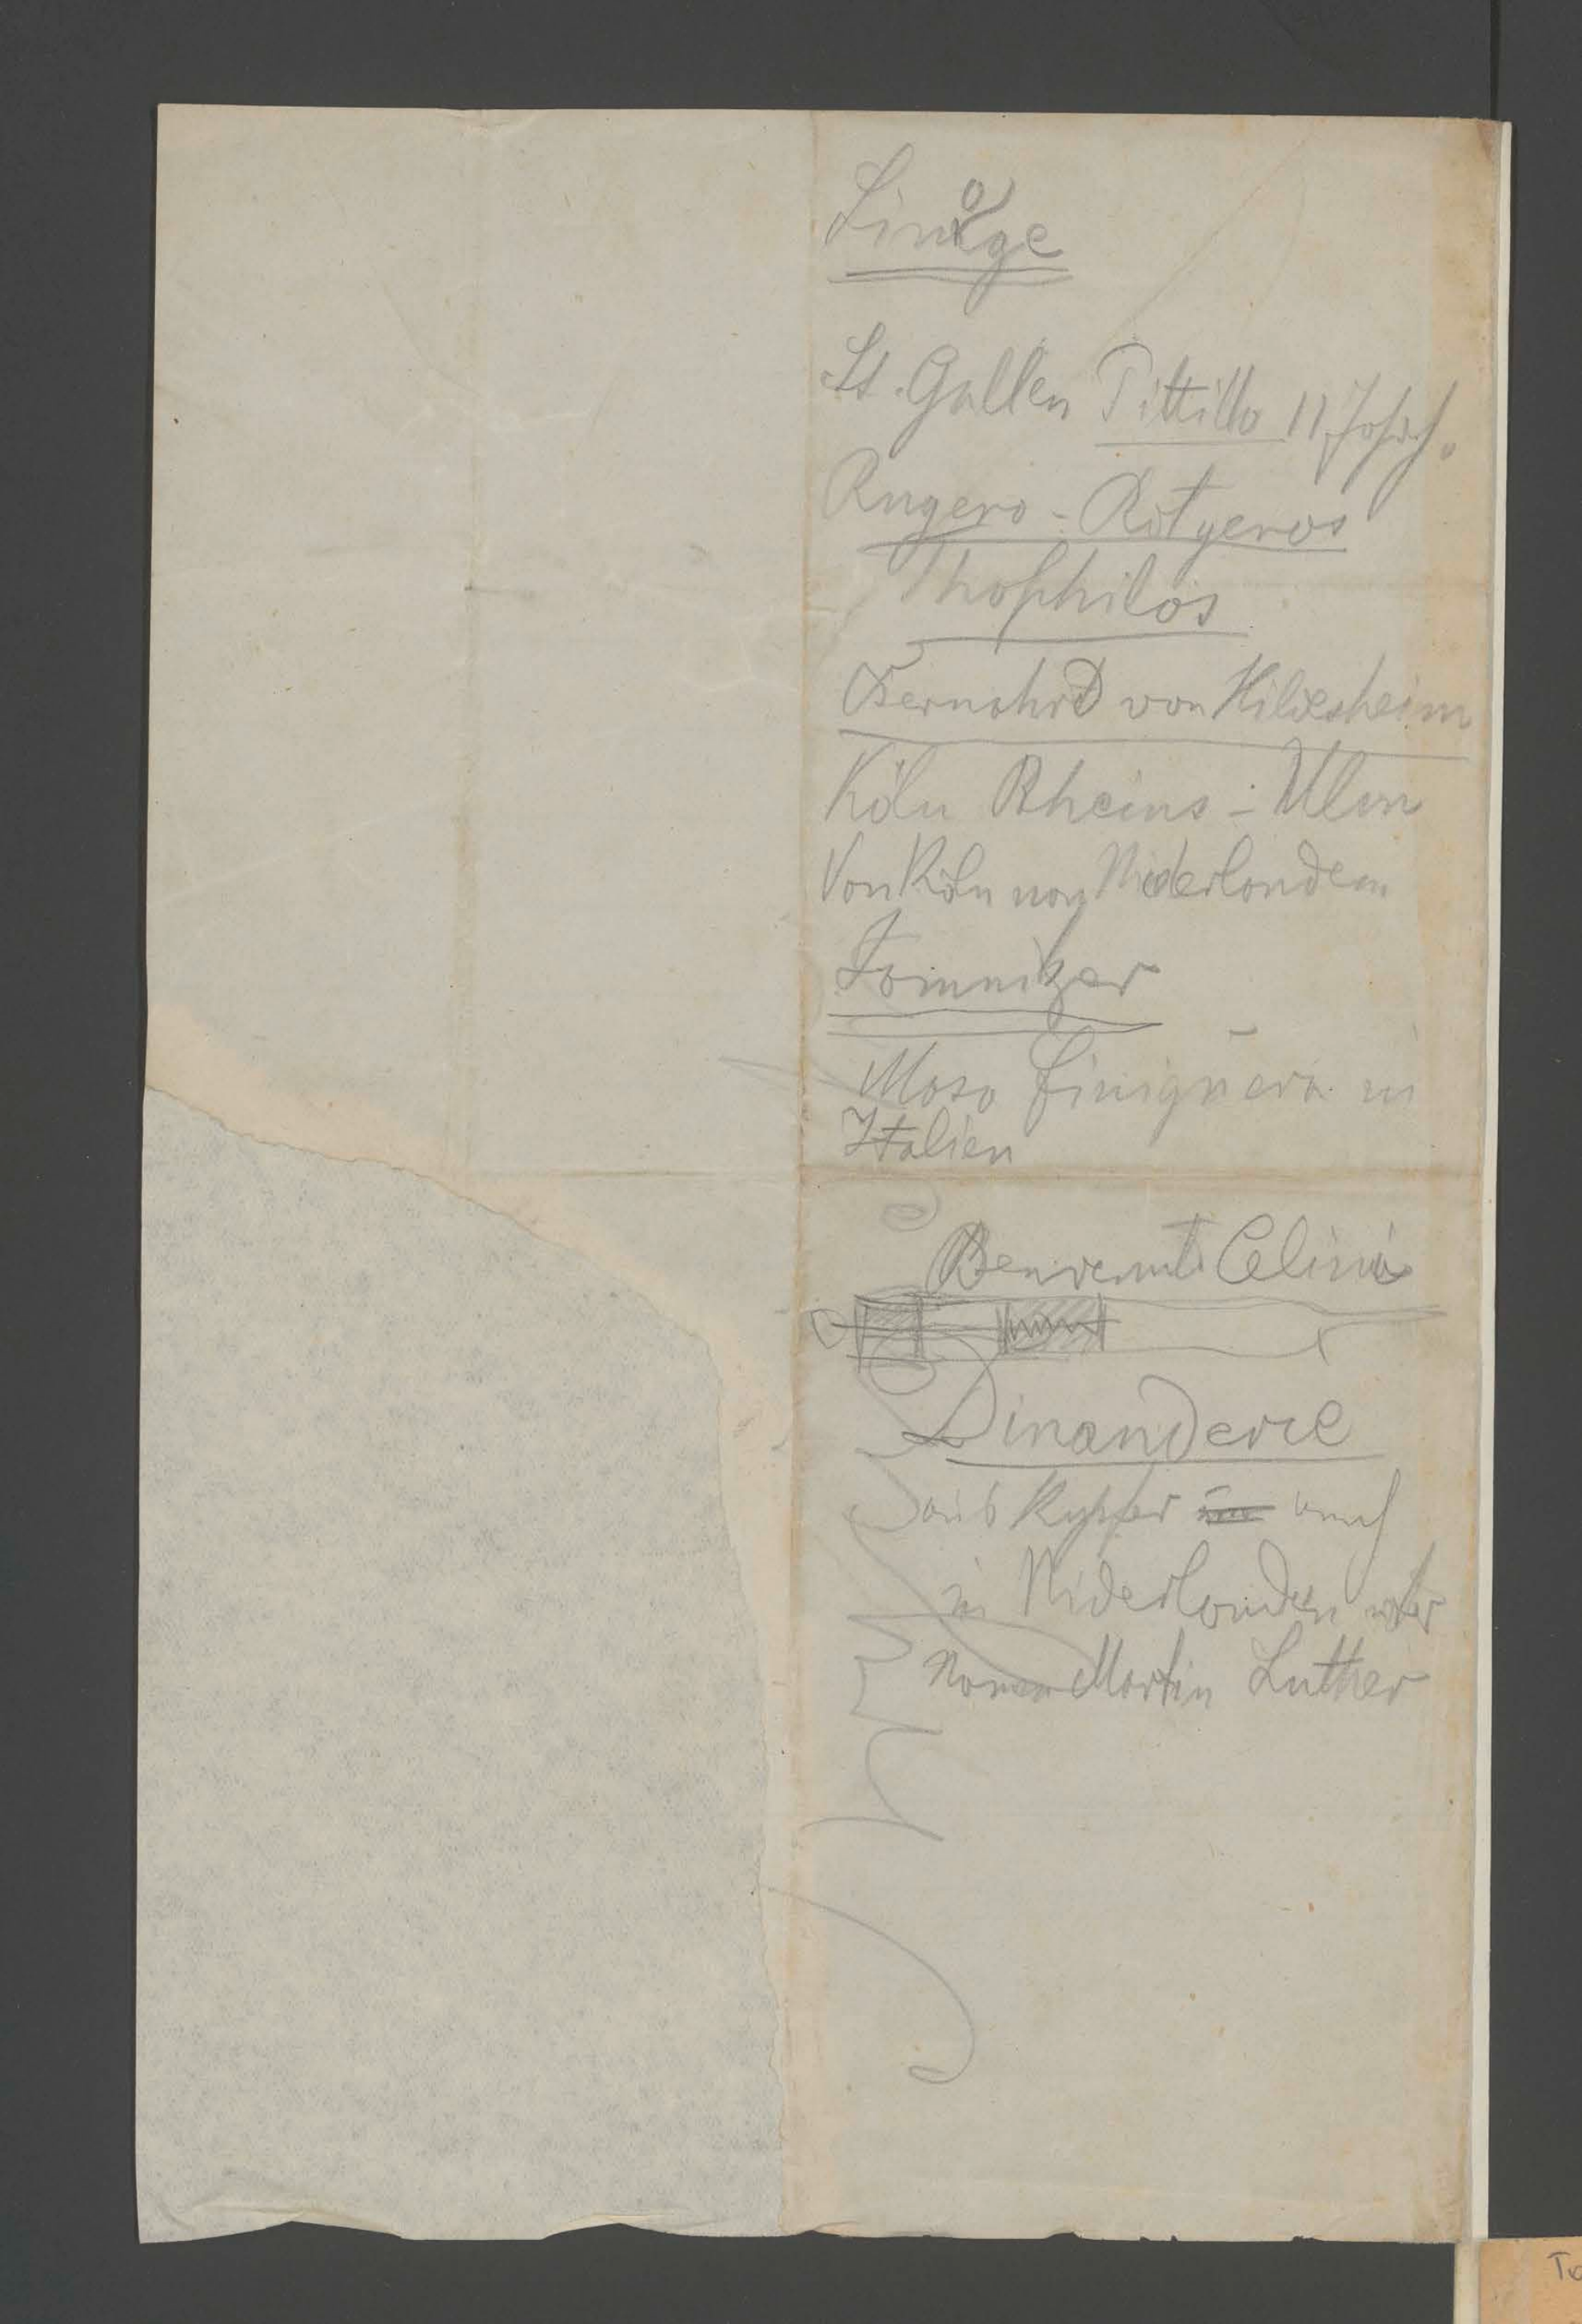 Limoge
St. Gallen Tittillo 11 Jahrh.
Rugero - Rotgeros
Thophilos
Bernahrd von Hildesheim
Köln Rheims - Ulm
Von Köln nach Niderlanden
Jamnitzer
Maso Finiguera in
Italien
Benvenuto Celini
Dinanderie
aus Kupfer auch
in Niderlanden
Namen Martin Luther